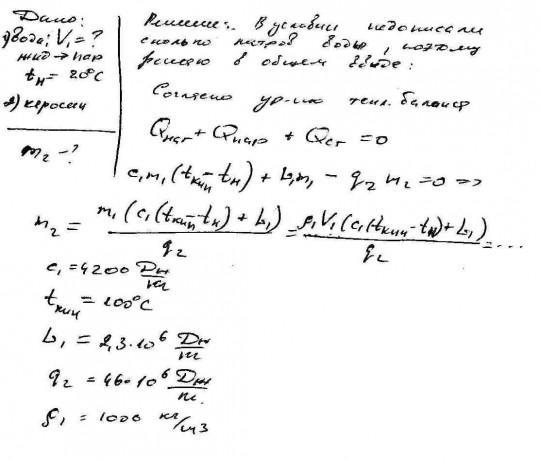 Дано:
1) вода; V₁ = ?
жид → пар
tн = 20°C
2) керосин
m₂ - ?
Решение: В условии недописали
сколько литров воды, поэтому
решаю в общем виде:
Согласно ур-нию тепл. баланса
Qнаг + Qпар + Qсг = 0
c₁m₁(tкип - tн) + L₁m₁ - q₂m₂ = 0 =>
m₂ = m₁(c₁(tкип - tн) + L₁) / q₂ = ρ₁V₁(c₁(tкип - tн) + L₁) / q₂ = ...
c₁ = 4200 Дж/кг
tкип = 100°C
L₁ = 2,3·10⁶ Дж/кг
q₂ = 46·10⁶ Дж/кг
ρ₁ = 1000 кг/м3